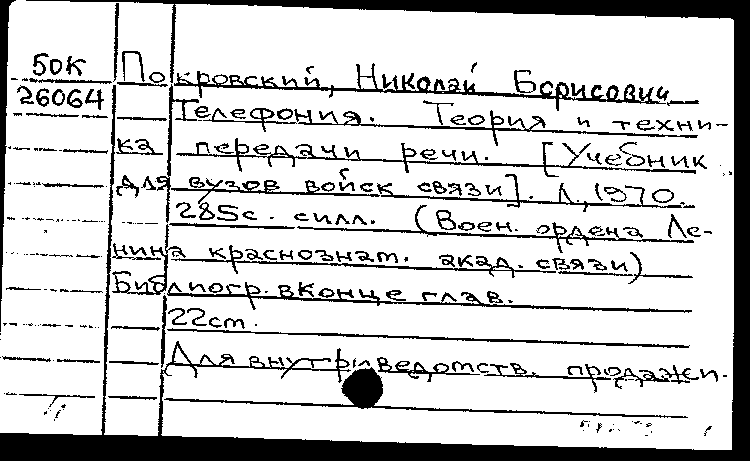 50К
26064
Покровский, Николай Борисович
Телефония. Теория и техни-
ка передачи речи. [Учебник
для вузов войск связи]. Л., 1970.
285с. силл. (Воен. ордена Ле-
нина краснознам. акад. связи)
Библиогр. вконце глав.
22см.
Для внутриведомств. продажи.